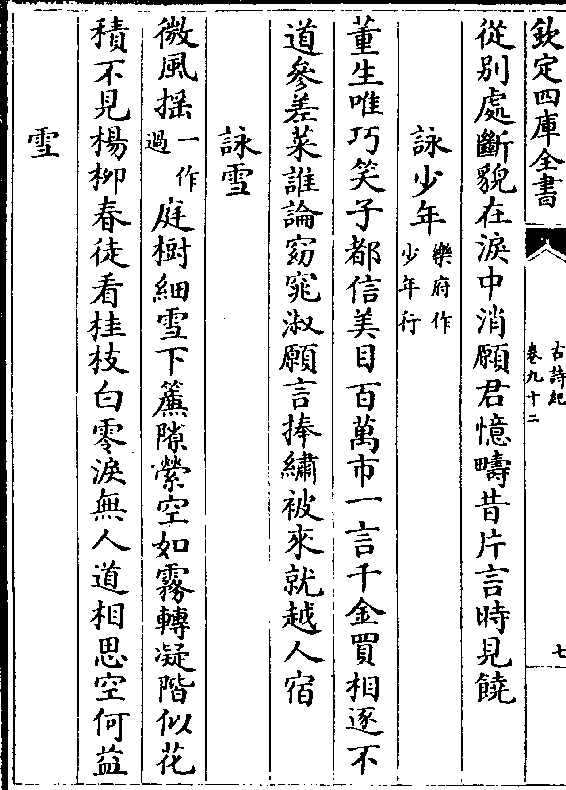 欽定四庫全書
古詩紀
卷九十二
七
從別處斷貌在淚中消願君憶疇昔片言時見饒
詠少年樂府作少年行
董生唯巧笑子都信美目百萬市一言千金買相逐不
道參差菜誰論窈窕淑願言捧繡被來就越人宿
詠雪
微風搖一作過庭樹細雪下簾隙縈空如霧轉凝階似花
積不見楊柳春徒看桂枝白零淚無人道相思空何益
雪